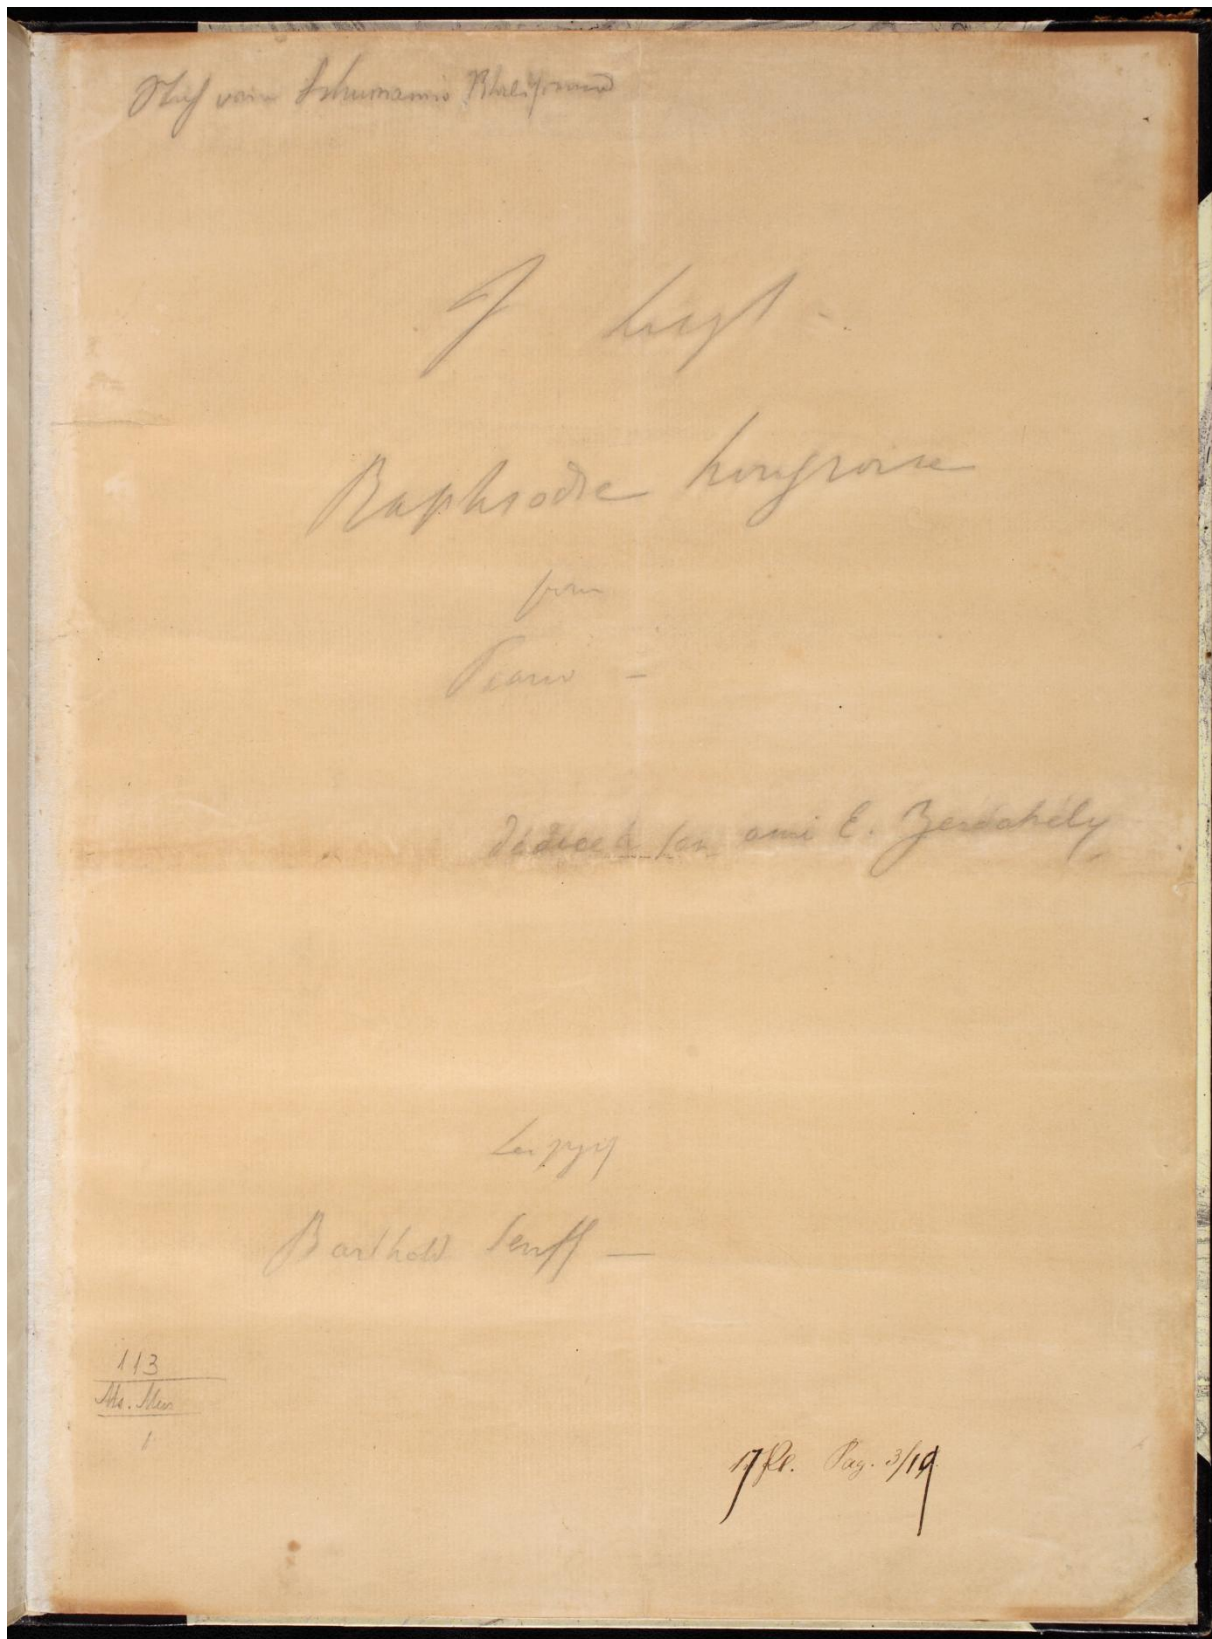 Schumannis
F Liszt -
Raphsodie hongroise
pour
Piano -
dédiée à son ami E. Zerdahély
Leipzig
Barthold Senff —
113
Ms. Mus
1
17 Pl. Pag. 3/19